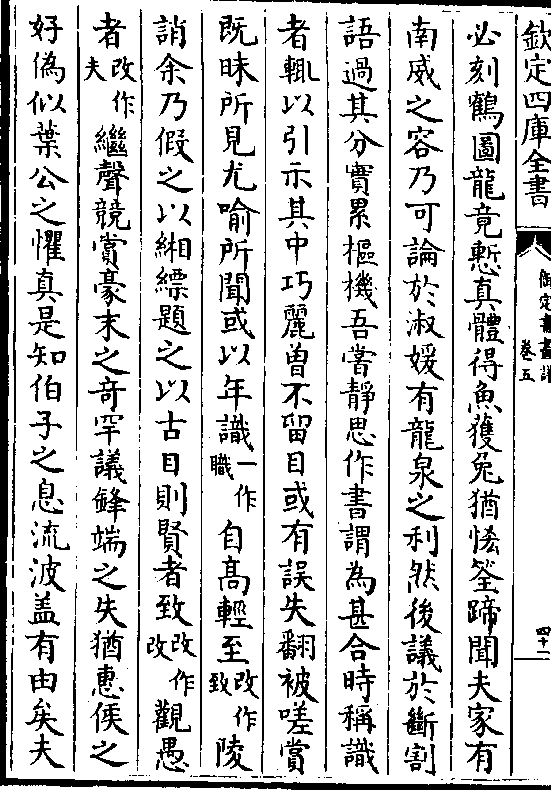 欽定四庫全書
御定書畫譜
卷五
四十二
必刻鶴圖龍竟慙真體得魚獲兔猶恡筌蹄聞夫家有
南威之容乃可論於淑媛有龍泉之利然後議於斷割
語過其分實累樞機吾嘗靜思作書謂為甚合時稱識
者輒以引示其中巧麗曾不留目或有誤失翻被嗟賞
既昧所見尤喻所聞或以年識一作職自高輕至改作致陵
誚余乃假之以緗縹題之以古目則賢者致改作改觀愚
者改作夫繼聲競賞豪末之奇罕議鋒端之失猶惠侯之
好偽似葉公之懼真是知伯子之息流波盖有由矣夫